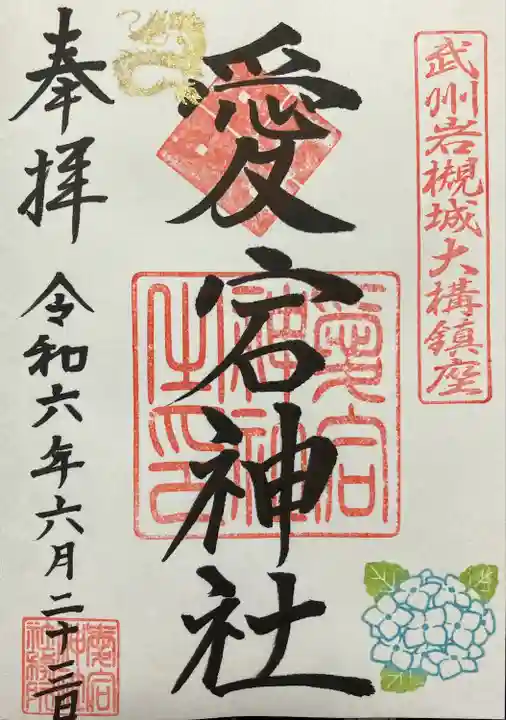 武州岩槻城大構鎮座
愛宕神社
愛宕
神社
之印
奉拝
令和六年六月二十三日